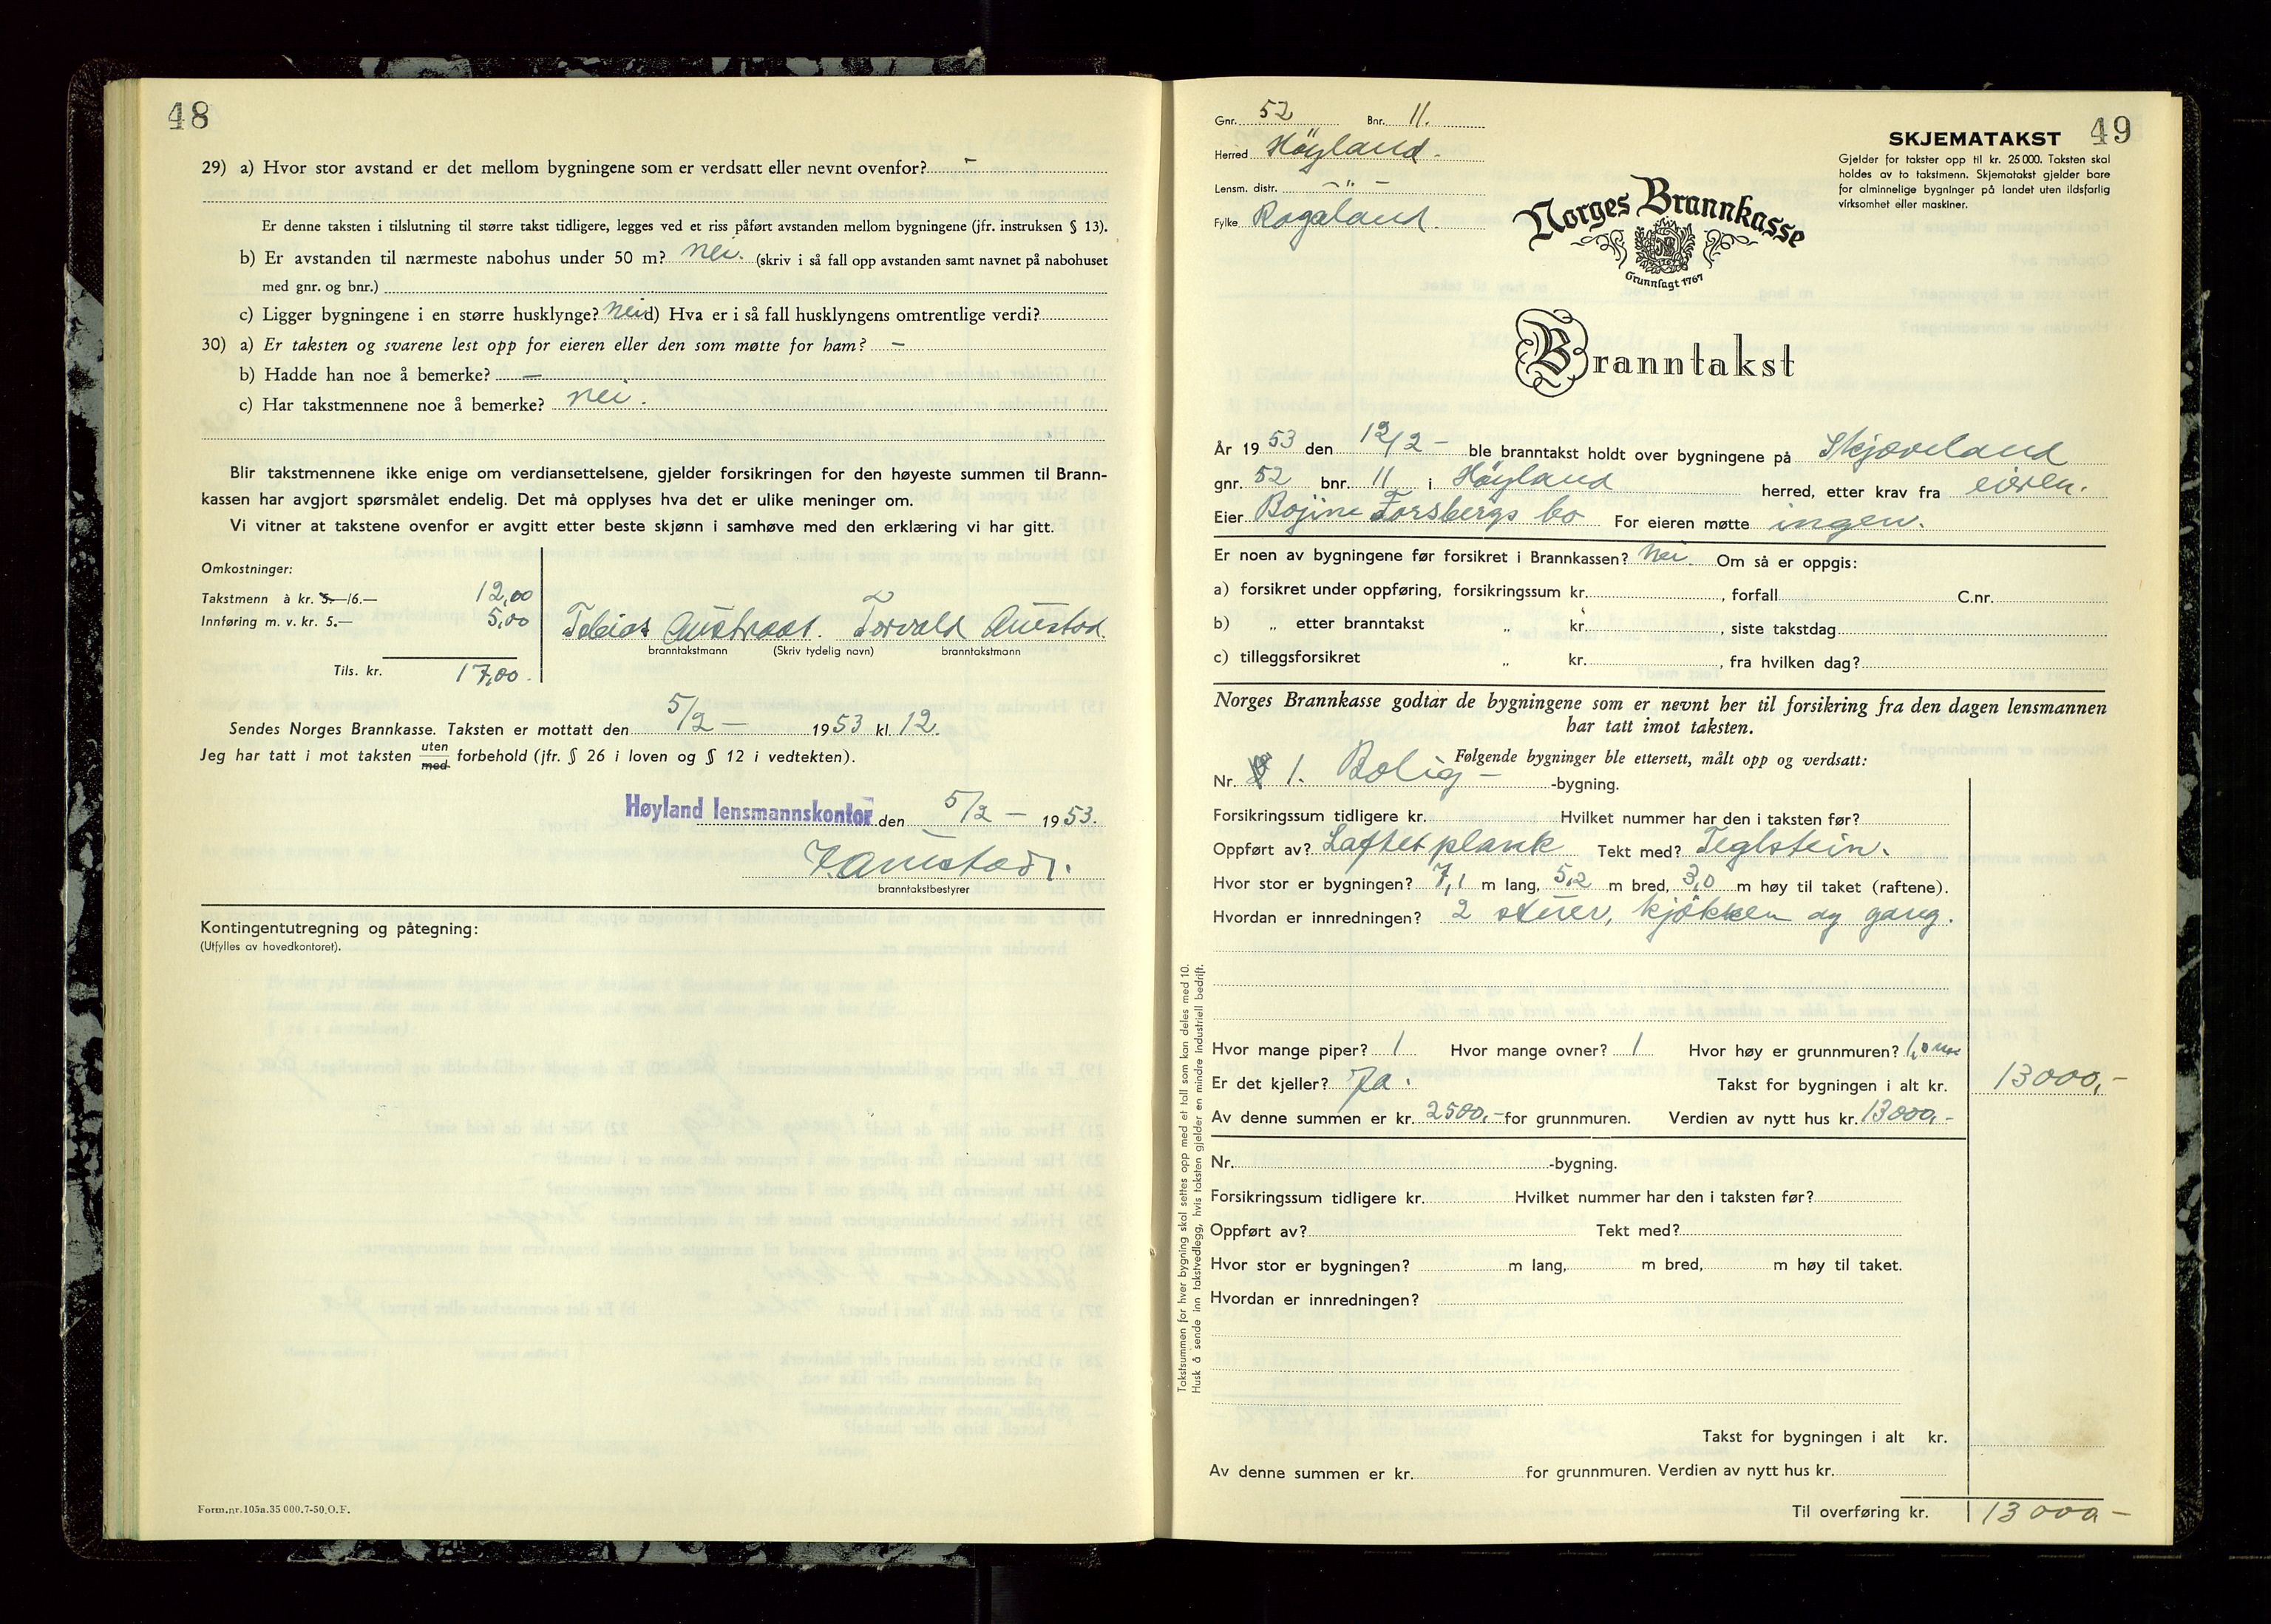 48
29) a) Hvor stor avstand er det mellom bygningene som er verdsatt eller nevnt ovenfor? -
Er denne taksten i tilslutning til større takst tidligere, legges ved et riss påført avstanden mellom bygningene (jfr. instruksen § 13).
b) Er avstanden til nærmeste nabohus under 50 m? nei. (skriv i så fall opp avstanden samt navnet på nabohuset
med gnr. og bnr.)
c) Ligger bygningene i en større husklynge? nei d) Hva er i så fall husklyngens omtrentlige verdi?
30) a) Er taksten og svarene lest opp for eieren eller den som møtte for ham? -
b) Hadde han noe å bemerke? -
c) Har takstmennene noe å bemerke? nei.
Blir takstmennene ikke enige om verdiansettelsene, gjelder forsikringen for den høyeste summen til Brann-
kassen har avgjort spørsmålet endelig. Det må opplyses hva det er ulike meninger om.
Vi vitner at takstene ovenfor er avgitt etter beste skjønn i samhøve med den erklæring vi har gitt.
Omkostninger:
Takstmenn à kr. 5.—/6.— 12,00
Innføring m. v. kr. 5.— 5,00
Tils. kr. 17,00.
Tobias Austraat. Torvald Auestad.
branntakstmann (Skriv tydelig navn) branntakstmann
Sendes Norges Brannkasse. Taksten er mottatt den 5/2 - 1953 kl. 12.
Jeg har tatt i mot taksten uten/med forbehold (jfr. § 26 i loven og § 12 i vedtekten).
Høyland lensmannskontor den 5/2 - 1953.
branntakstbestyrer
Kontingentutregning og påtegning:
(Utfylles av hovedkontoret).
Form.nr.105a.35 000.7-50.O.F.
Gnr. 52 Bnr. 11.
Herred Höyland.
Lensm. distr. - " -
Fylke Rogaland.
SKJEMATAKST 49
Gjelder for takster opp til kr. 25 000. Taksten skal
holdes av to takstmenn. Skjematakst gjelder bare
for alminnelige bygninger på landet uten ildsfarlig
virksomhet eller maskiner.
Norges Brannkasse
Grunnlagt 1767
Branntakst
År 1953 den 12/2 - ble branntakst holdt over bygningene på Skjæveland
gnr. 52 bnr. 11 i Höyland herred, etter krav fra eieren.
Eier Bojine Forsbergs bo For eieren møtte ingen.
Er noen av bygningene før forsikret i Brannkassen? Nei. Om så er oppgis:
a) forsikret under oppføring, forsikringssum kr. , forfall C.nr.
b) „ etter branntakst „ kr. , siste takstdag
c) tilleggsforsikret „ kr. , fra hvilken dag?
Norges Brannkasse godtar de bygningene som er nevnt her til forsikring fra den dagen lensmannen
har tatt imot taksten.
Følgende bygninger ble ettersett, målt opp og verdsatt:
Nr. 1. Bolig- -bygning.
Forsikringssum tidligere kr. Hvilket nummer har den i taksten før?
Oppført av? Laftet plank Tekt med? Teglstein.
Hvor stor er bygningen? 7,1 m lang, 5,2 m bred, 3,0 m høy til taket (raftene).
Hvordan er innredningen? 2 stuer, kjökken og gang.
Hvor mange piper? 1 Hvor mange ovner? 1 Hvor høy er grunnmuren? 1,0 m
Er det kjeller? Ja. Takst for bygningen i alt kr. 13000,-
Av denne summen er kr. 2500,- for grunnmuren. Verdien av nytt hus kr. 13000,-
Nr. -bygning.
Forsikringssum tidligere kr. Hvilket nummer har den i taksten før?
Oppført av? Tekt med?
Hvor stor er bygningen? m lang, m bred, m høy til taket.
Hvordan er innredningen?
Takst for bygningen i alt kr.
Av denne summen er kr. for grunnmuren. Verdien av nytt hus kr.
Til overføring kr. 13000-
Takstsummen for hver bygning skal settes opp med et tall som kan deles med 10.
Husk å sende inn takstvedlegg, hvis taksten gjelder en mindre industriell bedrift.